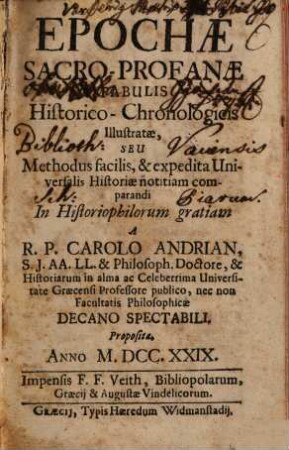 EPOCHÆ
SACRO-PROFANÆ
TABULIS
Historico-Chronologicis
Illustratæ,
Biblioth: SEU Vaciensis
Methodus facilis, & expedita Uni-
versalis Historiæ notitiam com-
parandi
Sch: Piarum.
In Historiophilorum gratiam
A
R. P. CAROLO ANDRIAN,
S. J. AA. LL. & Philosoph. Doctore, &
Historiarum in alma ac Celeberrima Universi-
tate Græcensi Professore publico, nec non
Facultatis Philosophicæ
DECANO SPECTABILI.
Proposita.
ANNO M. DCC. XXIX.
Impensis F. F. Veith, Bibliopolarum,
Græcij & Augustæ Vindelicorum.
GRÆCIJ, Typis Hæredum Widmanstadij.